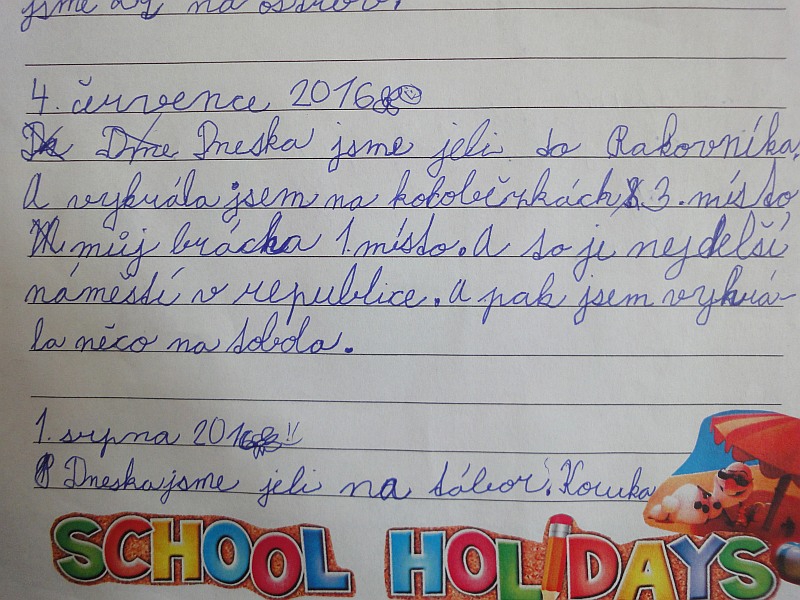 jsme na ostrov.
4. července 2016
Dneska jsme jeli do Rakovníka.
A vyhrála jsem na koloběžkách 3. místo
můj brácha 1. místo. A to je nejdelší
náměstí v republice. A pak jsem vyhrá-
la něco na tobola.
1. srpna 2016 !!
Dneska jsme jeli na tábor. Kouka
SCHOOL HOLIDAYS